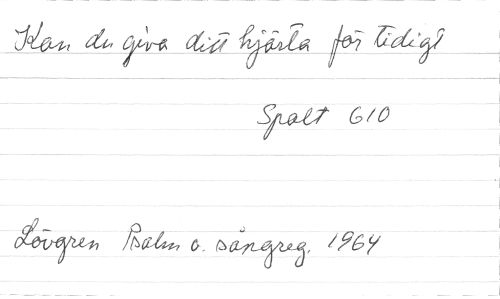 Kan du giva ditt hjärta för tidigt
Spalt 610
Lövgren Psalm o. sångreg. 1964